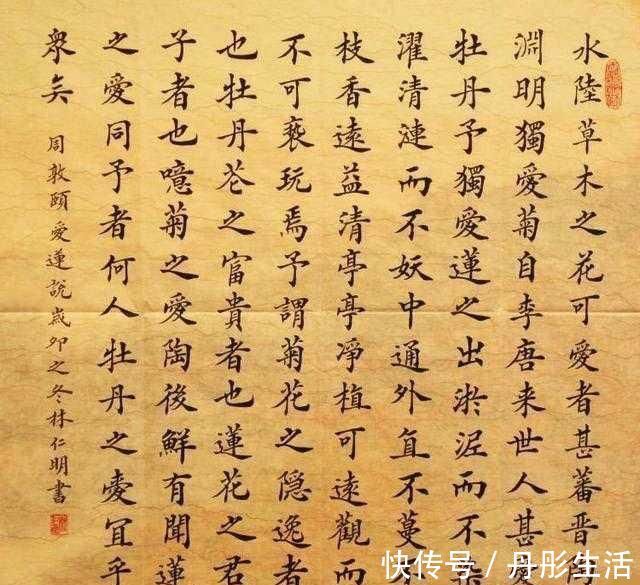 水陸草木之花可愛者甚蕃晉
淵明獨愛菊自李唐来世人甚
牡丹予獨愛蓮之出淤泥而不
濯清漣而不妖中通外直不蔓
枝香遠益清亭亭凈植可遠觀而
不可褻玩焉予謂菊花之隐逸者
也牡丹花之富貴者也蓮花之君
子者也噫菊之愛陶後鮮有聞蓮
之愛同予者何人牡丹之愛宜乎
衆矣
周敦頤愛蓮說歲卯之冬林仁明書
快传号／丹彤生活